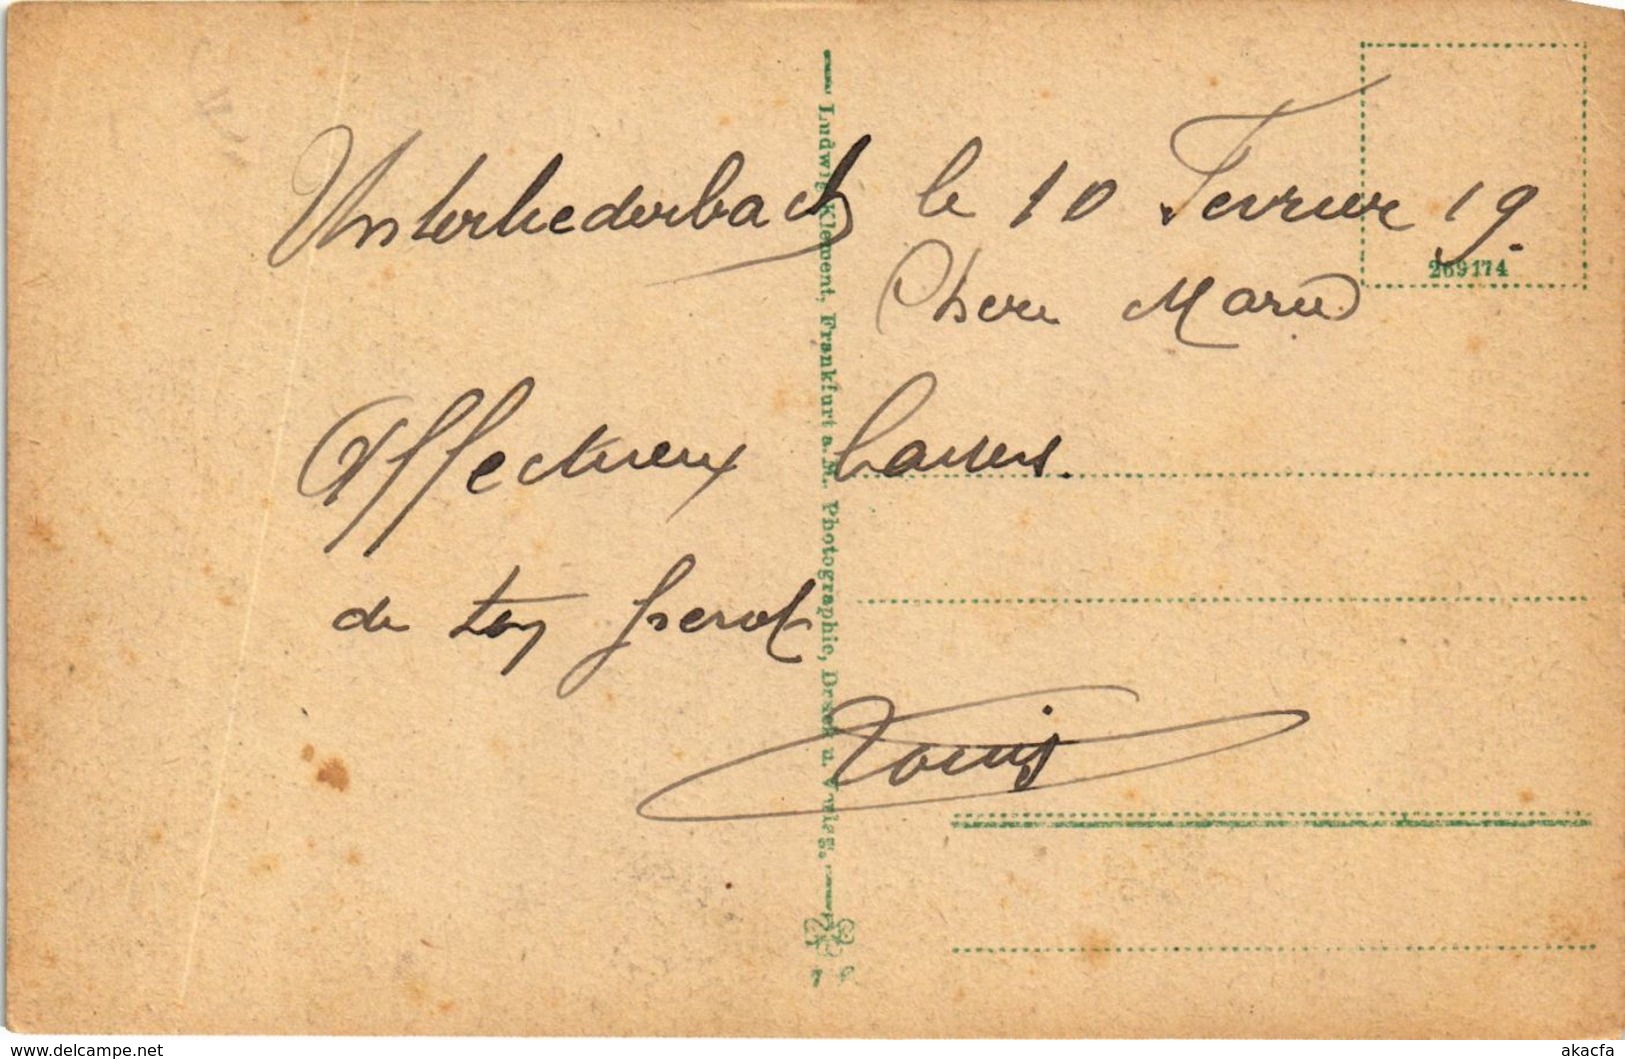 Unterliederbach le 10 Fevrier 19.
269174
Chere Marie
Affectueux baisers.
de ton frerot
Louis
Ludwig Klement, Frankfurt a. M. Photographie, Druck u. Verlag.
www.delcampe.net
akacfa